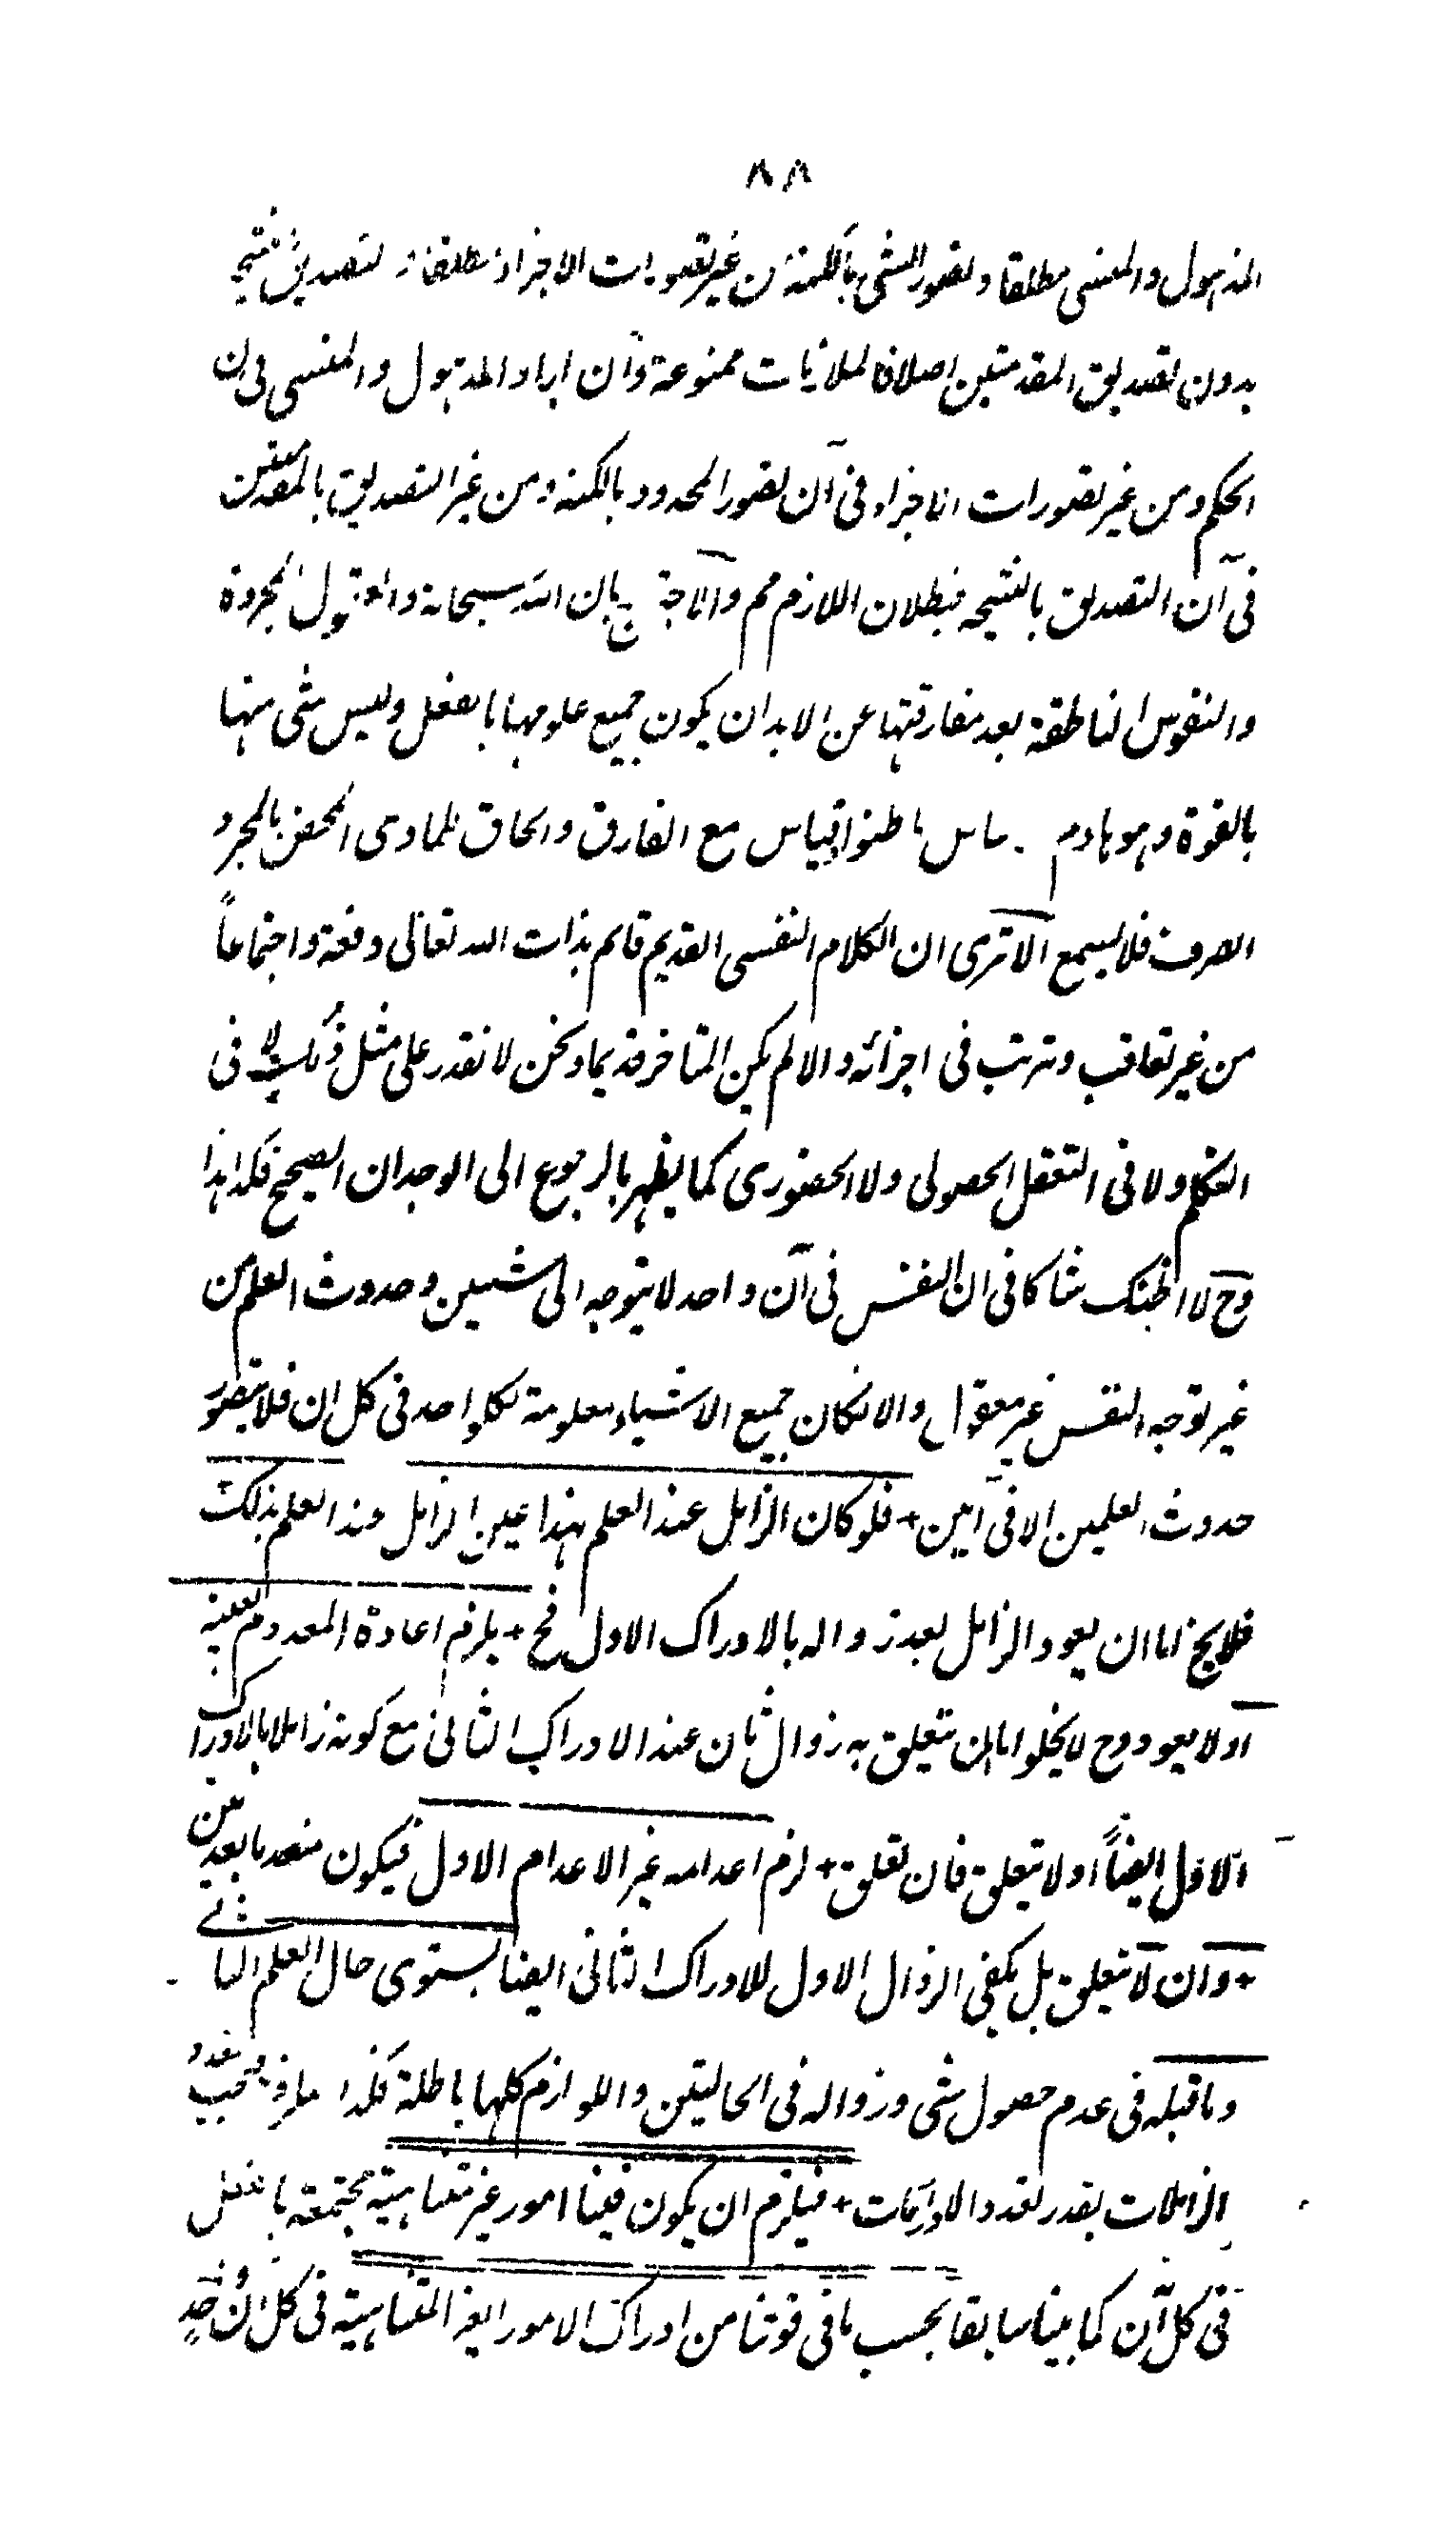 ٨٨
المذہول والمنسی مطلقا وتصور الشی بالکنہ من غیر تصورات الاجزاء مطلقا و التصدیق بنتیجۃ
بدون تصدیق المقدمتین اصلا فالملازمات ممنوعۃ وان اراد المذہول والمنسی فی ان
الحکم ومن غیر تصورات الاجزاء فی آن تصور المحدود بالکنہ ومن غیر التصدیق بالمقدمتین
فی آن التصدیق بالنتیجہ فبطلان اللازم مم والاحتجاج بان اللہ سبحانہ والعقول المجردۃ
والنفوس الناطقۃ بعد مفارقتہا عن الابدان یکون جمیع علومہا بالفعل ولیس شی منہا
بالقوۃ وہو ہادم ما ظنوا قیاس مع الفارق والحاق للمادی المحض بالمجرد
الصرف فلا یسمع الا تری ان الکلام النفسی القدیم قائم بذات اللہ تعالی دفعۃ واجتماعاً
من غیر تعاقب وترتب فی اجزائہ والا لم یکن المتاخر قدیما ونحن لا نقدر علی مثل ذلک لا فی
التکلم ولا فی التعقل الحصولی ولا الحضوری کما یظہر بالرجوع الی الوجدان الصحیح فکذا ہذا
وح لا اظنک شاکا فی ان النفس فی آن واحد لا یتوجہ الی شیئین وحدوث العلم من
غیر توجہ النفس غیر معقول والا لکان جمیع الاشیاء معلومۃ لکلواحد فی کل ان فلا یتصور
حدوث العلمین الا فی آنین + فلو کان الزائل عند العلم بہذا عین الزائل عند العلم بذلک
فلا یخ اما ان یعود الزائل بعد زوالہ بالادراک الاول فح + یلزم اعادۃ المعدوم بعینہ
اولا یعود وح لا یخلو اما ان یتعلق بہ زوال ثان عند الادراک الثانی مع کونہ زائلا بالادراک
الاول ایضاً اولا یتعلق فان تعلق + لزم اعدامہ غیر الاعدام الاول فیکون منعدما بعدمین
+ وان لا یتعلق بل یکفی الزوال الاول للادراک الثانی ایضا یستوی حال العلم الثانی
وما قبلہ فی عدم حصول شی وزوالہ فی الحالیتن واللوازم کلہا باطلۃ فکذا ملزومہ فیجب تعدد
الزائلات بقدر تعدد الادراکات + فیلزم ان یکون فینا امور غیر متناہیۃ مجتمعۃ بالفعل
فی کل آن کما بینا سابقا بحسب ما فی قوتنا من ادراک الامور الغیر المتناہیۃ فی کل ان